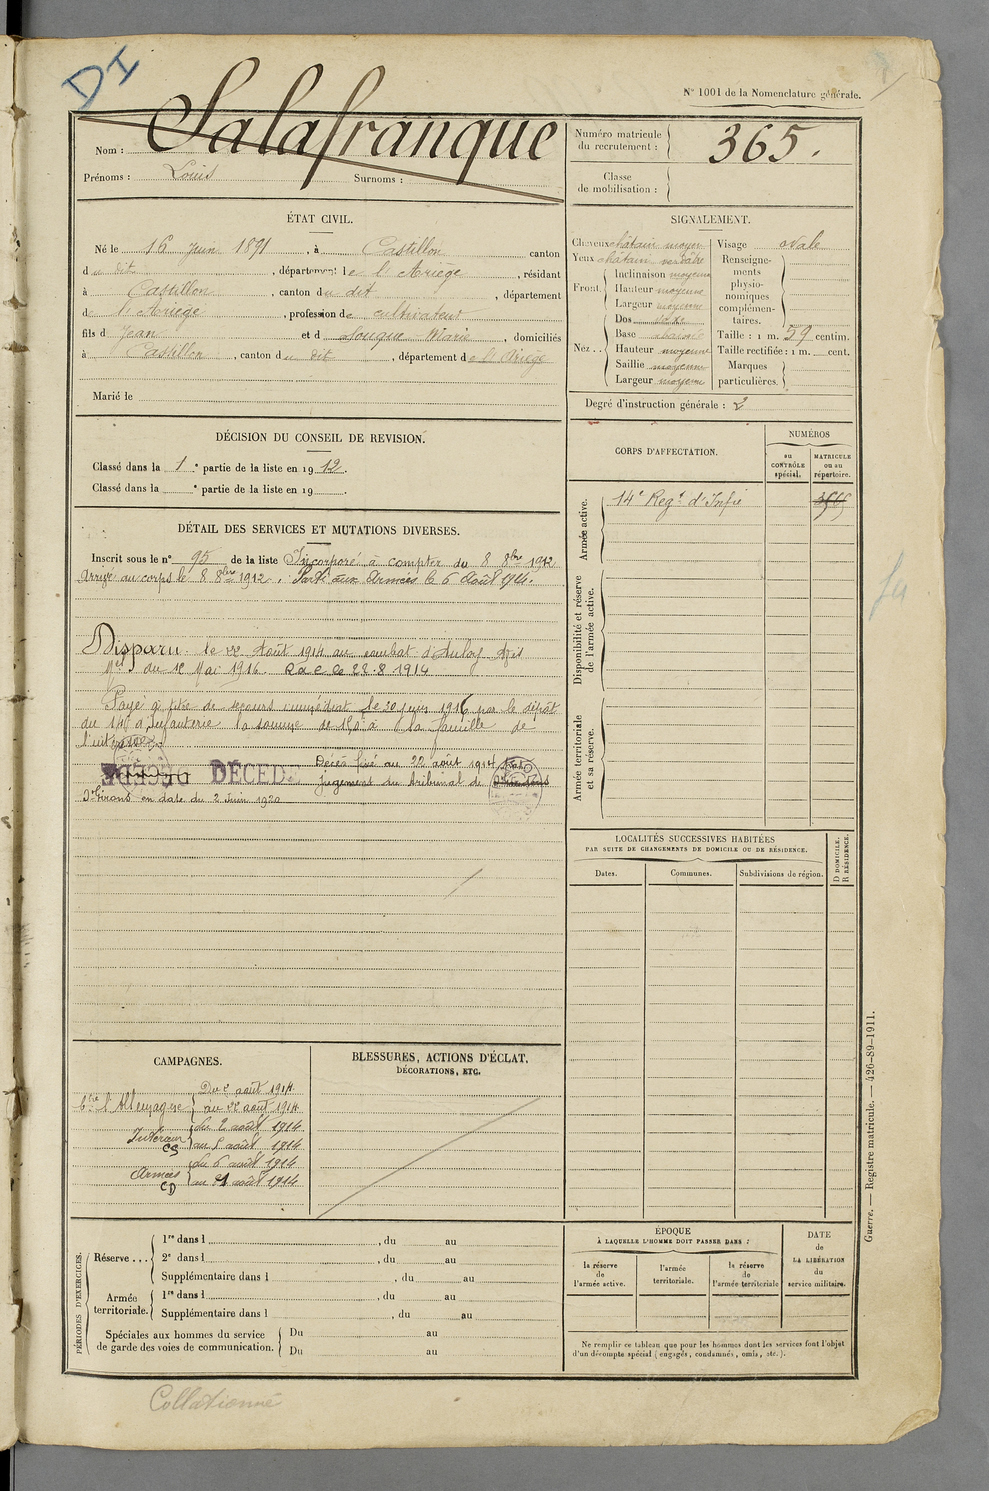 DI
N° 1001 de la Nomenclature générale.
Nom : Salafranque
Prénoms : Louis Surnoms :
Numéro matricule du recrutement : 365.
Classe de mobilisation :
ÉTAT CIVIL.
Né le 16 Juin 1891, à Castillon canton
du dit, département de l'Ariège, résidant
à Castillon, canton du dit, département
de l'Ariège, profession de cultivateur
fils d Jean et d Souque Marie, domiciliés
à Castillon, canton du dit, département de l'Ariège
Marié le
SIGNALEMENT.
Cheveux châtain moyen
Yeux châtain verdâtre
Front. Inclinaison moyenne
Hauteur moyenne
Largeur moyenne
Nez.. Dos
Base
Hauteur moyenne
Saillie moyenne
Largeur moyenne
Visage ovale
Renseignements physionomiques complémentaires.
Taille : 1 m. 59 centim.
Taille rectifiée : 1 m. cent.
Marques particulières.
Degré d'instruction générale : 2
DÉCISION DU CONSEIL DE REVISION.
Classé dans la 1e partie de la liste en 1912.
Classé dans la e partie de la liste en 19 .
CORPS D'AFFECTATION.
NUMÉROS
au CONTRÔLE spécial.
MATRICULE ou au répertoire.
Armée active.
14e Regt d'Infie
Disponibilité et réserve de l'armée active.
Armée territoriale et sa réserve.
DÉTAIL DES SERVICES ET MUTATIONS DIVERSES.
Inscrit sous le n° 95 de la liste Incorporé à compter du 8 8bre 1912
Arrivé au corps le 8 8bre 1912. Parti aux Armées le 6 Août 1914.
Disparu le 22 Août 1914 au combat d'Anloy Avis
Mel du 12 Mai 1916. Rac le 22-8-1914
Payé à titre de secours immédiat le 30 juin 1916 par le dépôt
du 14e d'Infanterie la somme de 150f à la famille de
l'intéressé.
DÉCÉDÉ DÉCÉDÉ Décès fixé au 22 août 1914
jugement du tribunal de
St Girons en date du 2 Juin 1920
LOCALITÉS SUCCESSIVES HABITÉES
PAR SUITE DE CHANGEMENTS DE DOMICILE OU DE RÉSIDENCE.
Dates. Communes. Subdivisions de région.
D DOMICILE. R RÉSIDENCE.
CAMPAGNES.
Ctre l'Allemagne Du 2 août 1914
au 22 août 1914
Intérieur CS du 2 août 1914
au 5 août 1914
Armées CD du 6 août 1914
au 21 août 1914
BLESSURES, ACTIONS D'ÉCLAT,
DÉCORATIONS, ETC.
PÉRIODES D'EXERCICES.
Réserve ... 1re dans l , du au
2e dans l , du au
Supplémentaire dans l , du au
Armée territoriale. 1re dans l , du au
Supplémentaire dans l , du au
Spéciales aux hommes du service de garde des voies de communication. Du au
Du au
ÉPOQUE
À LAQUELLE L'HOMME DOIT PASSER DANS :
la réserve de l'armée active.
l'armée territoriale.
la réserve de l'armée territoriale
DATE de LA LIBÉRATION du service militaire.
Ne remplir ce tableau que pour les hommes dont les services font l'objet
d'un décompte spécial (engagés, condamnés, omis, etc.).
Guerre. — Registre matricule. — 426-89-1911.
Collationné